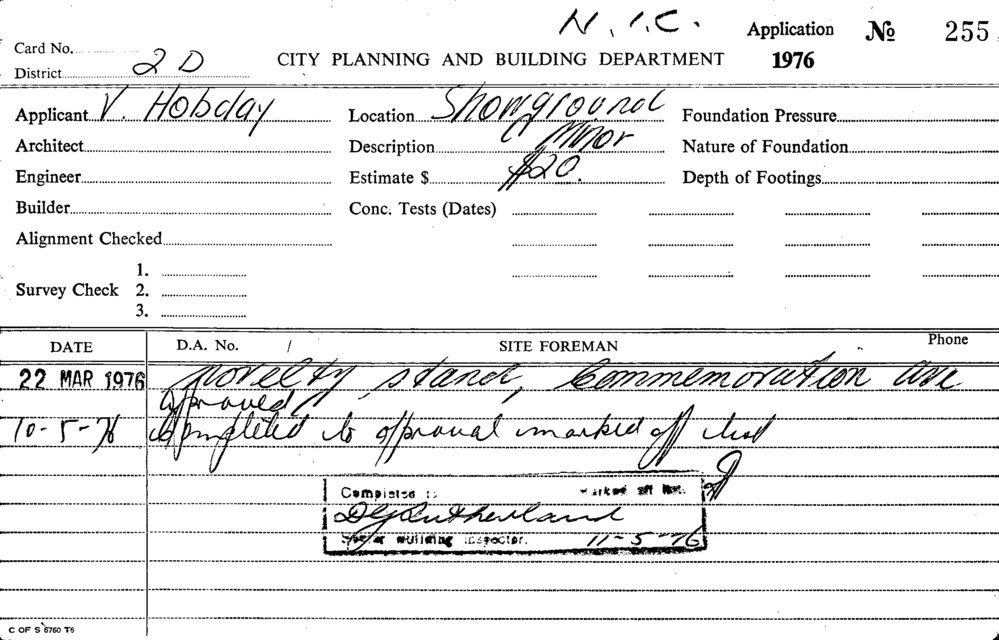 N.I.C.
Application № 255
Card No.
District 2 D
CITY PLANNING AND BUILDING DEPARTMENT 1976
Applicant V. Hobday Location Showground Foundation Pressure
Architect Description Minor Nature of Foundation
Engineer Estimate $ $20. Depth of Footings
Builder Conc. Tests (Dates)
Alignment Checked
Survey Check 1.
2.
3.
DATE D.A. No. / SITE FOREMAN Phone
22 MAR 1976 Novelty stand, Commemoration ave
approved
10-5-76 Completed to approval marked off list
Completed marked off list.
D G Sutherland
Building Inspector. 11-5-76
C OF S 6760 T6